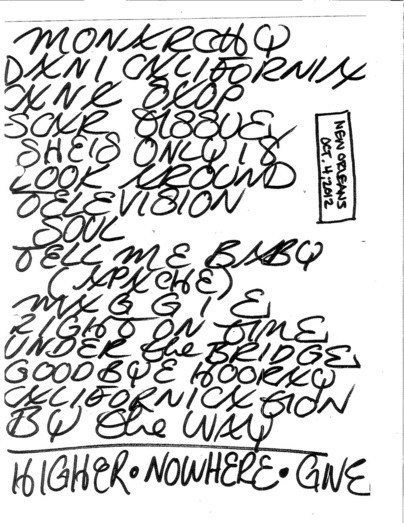 MONARCHY
DANI CALIFORNIA
CANT STOP
SCAR TISSUE
SHES ONLY 18
LOOK AROUND
TELEVISION
SOUL
TELL ME BABY
(APACHE)
MAGGIE
RIGHT ON TIME
UNDER the BRIDGE
GOODBYE HOORAY
CALIFORNICATION
BY the WAY
HIGHER • NOWHERE • GIVE
NEW ORLEANS
OCT. 4, 2012